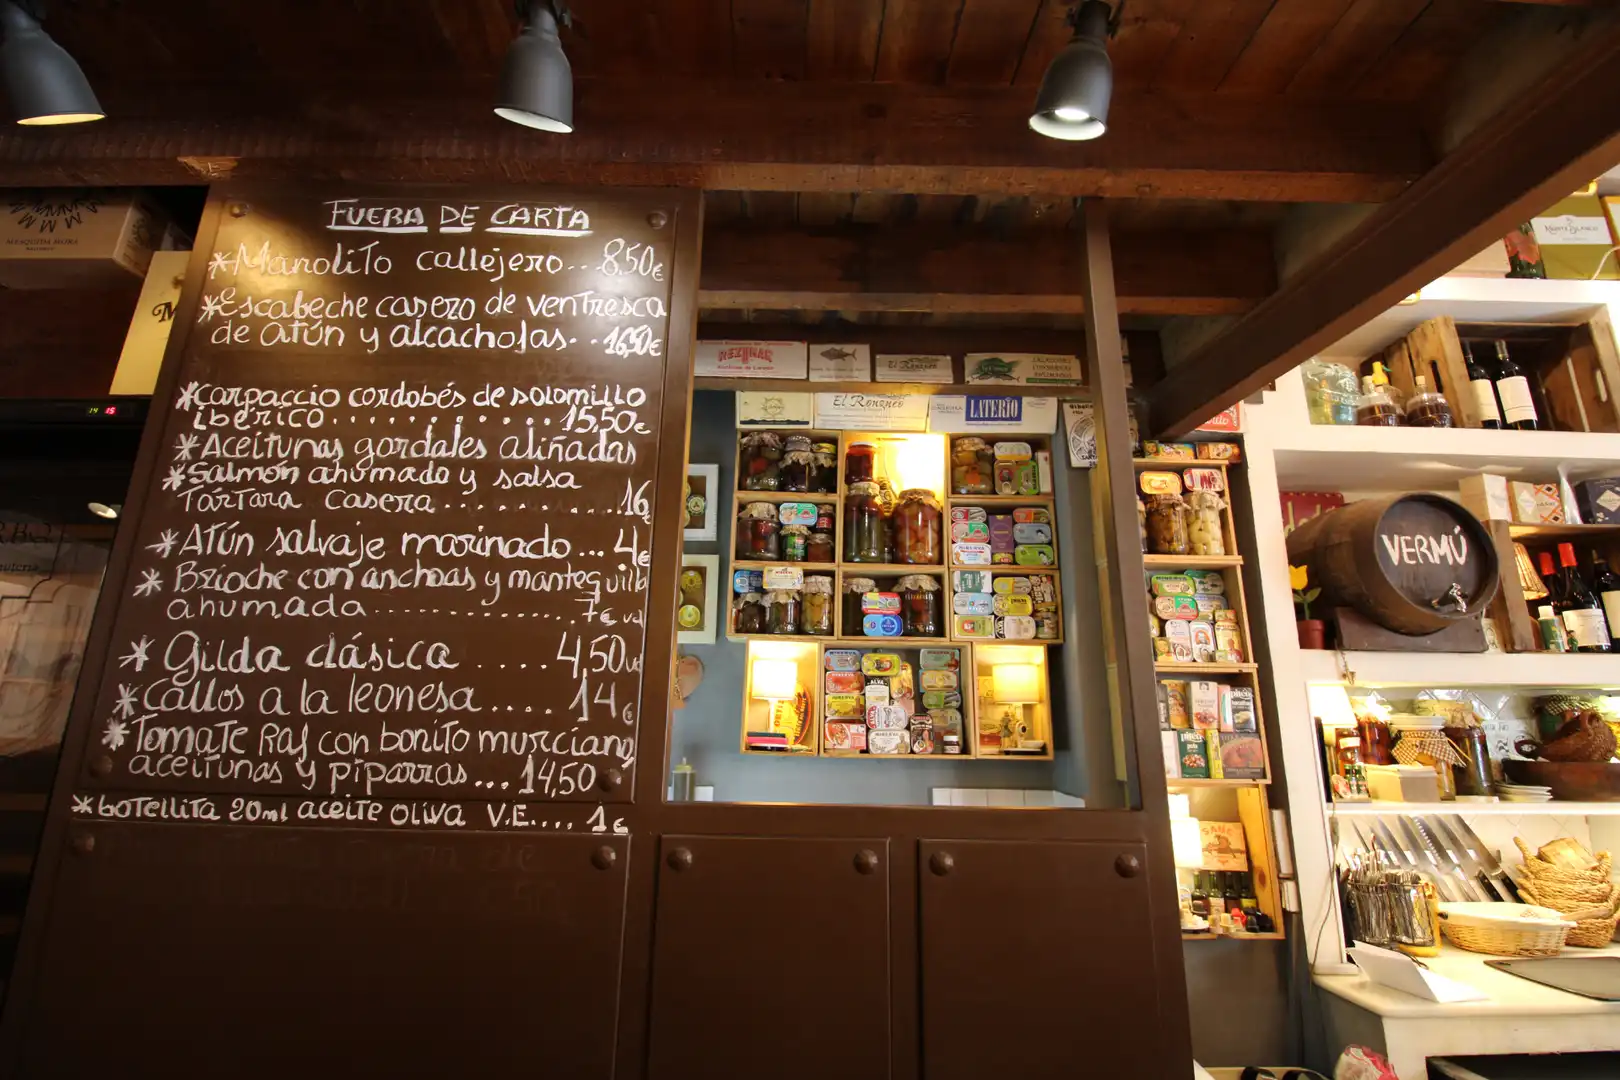 FUERA DE CARTA
*Manolito callejero...8,50€
*escabeche casero de ventresca
de atún y alcachofas..16,50€
*carpaccio cordobés de solomillo
iberico...........15,50€
*Aceitunas gordales aliñadas
*Salmón ahumado y salsa
Tártara casera.........16€
*Atún salvaje marinado...4€
*Brioche con anchoas y mantequilla
ahumada...............7€ ud
*Gilda clásica ....4,50ud
*Callos a la leonesa....14€
*Tomate Raf con bonito murciano,
aceitunas y piparras...14,50
*botellita 20ml aceite oliva V.E....1€
MESQUIDA MORA
14 15
El Ronqueo
El Ronqueo
LATERÍO
VERMÚ
SAUC